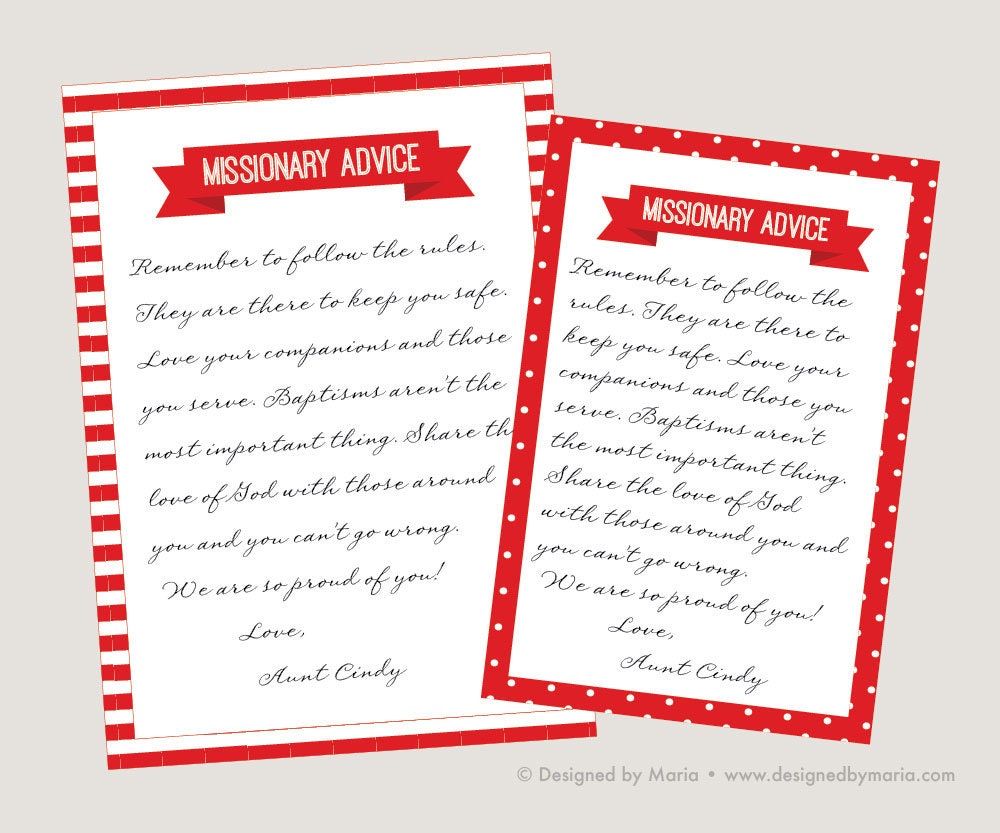 MISSIONARY ADVICE
Remember to follow the rules.
They are there to keep you safe.
Love your companions and those
you serve. Baptisms aren't the
most important thing. Share th
love of God with those around
you and you can't go wrong.
We are so proud of you!
Love,
Aunt Cindy
MISSIONARY ADVICE
Remember to follow the
rules. They are there to
keep you safe. Love your
companions and those you
serve. Baptisms aren't
the most important thing.
Share the love of God
with those around you and
you can't go wrong.
We are so proud of you!
Love,
Aunt Cindy
© Designed by Maria • www.designedbymaria.com